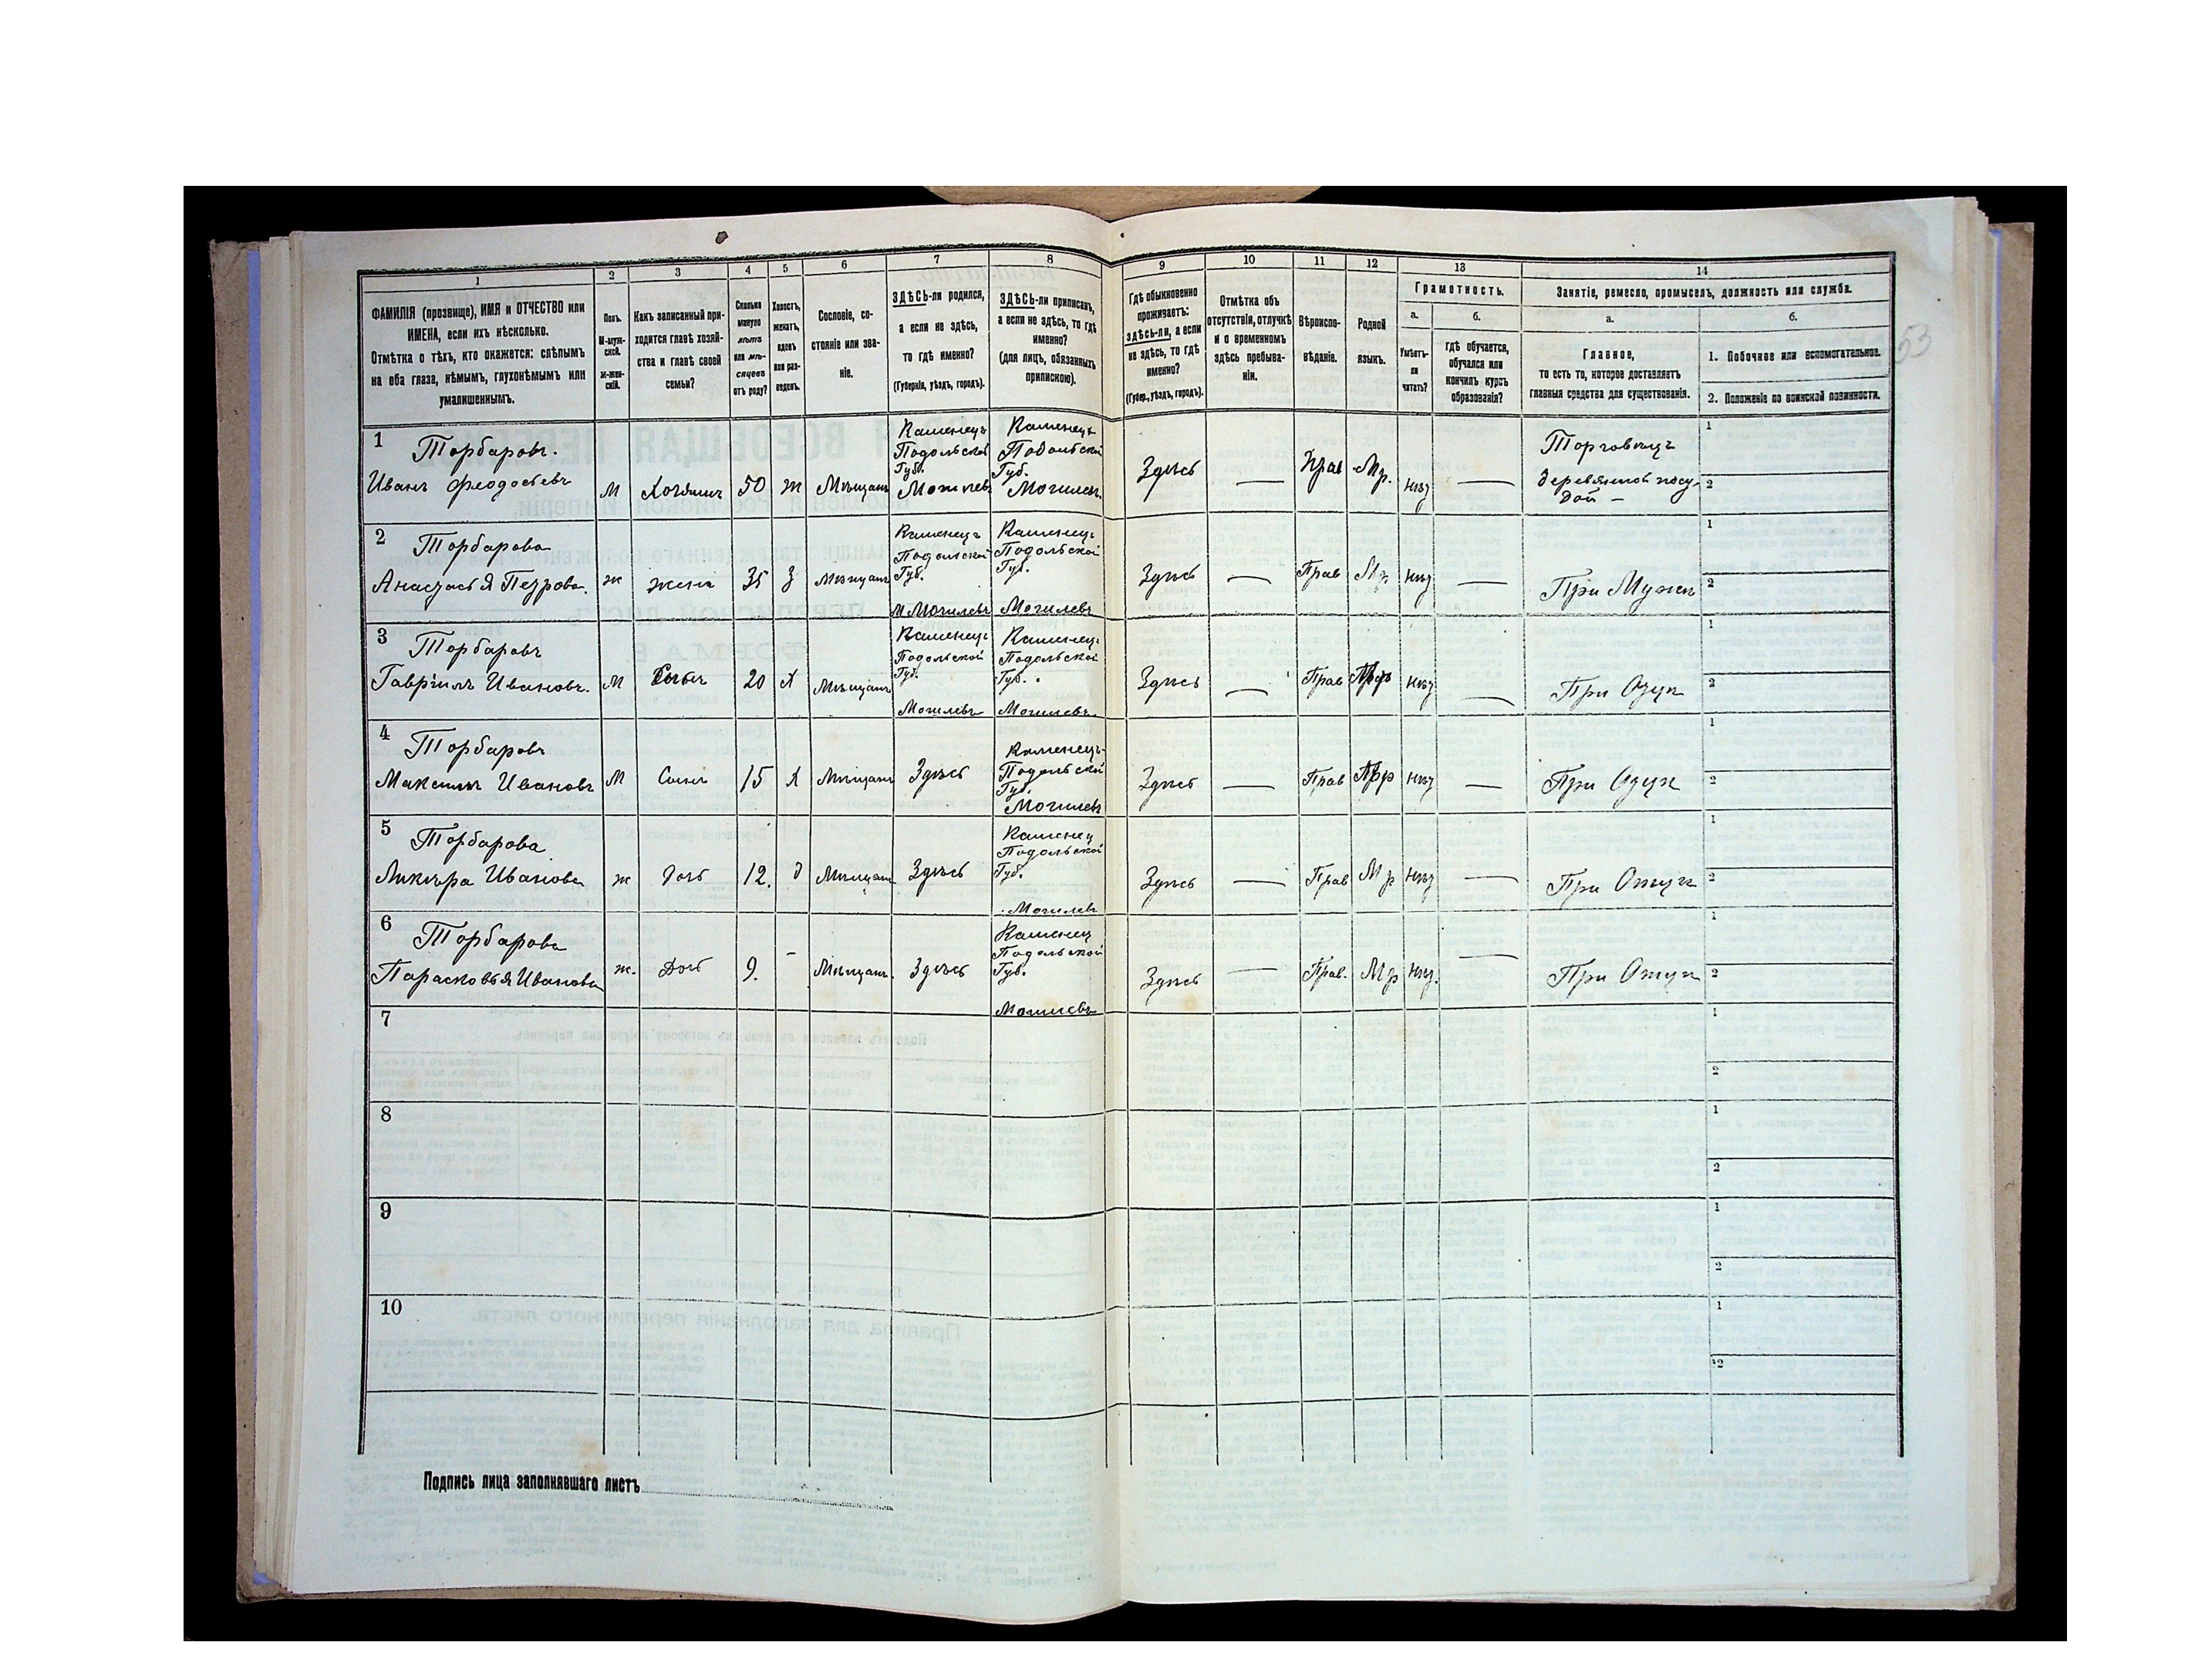 1
2
3
4
5
6
7
8
9
10
11
12
13
14
ФАМИЛІЯ (прозвище), ИМЯ и ОТЧЕСТВО или
ИМЕНА, если ихъ нѣсколько.
Отмѣтка о тѣхъ, кто окажется: слѣпымъ
на оба глаза, нѣмымъ, глухонѣмымъ или
умалишеннымъ.
Полъ.
М-муж-
ской.
ж-жен-
скій.
Какъ записанный при-
ходится главѣ хозяй-
ства и главѣ своей
семьи?
Сколько
минуло
лѣтъ
или мѣ-
сяцевъ
отъ роду?
Холостъ,
женатъ,
вдовъ
или раз-
веденъ.
Сословіе, со-
стояніе или зва-
ніе.
ЗДѢСЬ-ли родился,
а если не здѣсь,
то гдѣ именно?
(Губернія, уѣздъ, городъ).
ЗДѢСЬ-ли приписанъ,
а если не здѣсь, то гдѣ
именно?
(для лицъ, обязанныхъ
припискою).
Гдѣ обыкновенно
проживаетъ:
здѣсь-ли, а если
не здѣсь, то гдѣ
именно?
(Губер., уѣздъ, городъ).
Отмѣтка объ
отсутствіи, отлучкѣ
и о временномъ
здѣсь пребыва-
ніи.
Вѣроиспо-
вѣданіе.
Родной
языкъ.
Грамотность.
а.
Умѣетъ-
ли
читать?
б.
гдѣ обучается,
обучался или
кончилъ курсъ
образованія?
Занятіе, ремесло, промыселъ, должность или служба.
а.
Главное,
то есть то, которое доставляетъ
главныя средства для существованія.
б.
1. Побочное или вспомогательное.
2. Положеніе по воинской повинности.
53
1
Торбаровъ.
Иванъ Феодосьевъ
М
Хозяинъ
50
ж
Мѣщанъ
Каменецъ
Подольской
Губ.
Могилевъ
Каменецъ
Подольской
Губ.
Могилевъ.
Здѣсь
—
Прав
Мр.
нѣт
—
Торговецъ
деревянной посу-
дой —
1
2
2
Торбарова
Анастасья Петрова.
ж
жена
35
З
Мѣщанъ
Каменецъ
Подольской
Губ.
М Могилевъ
Каменецъ
Подольской
Губ.
Могилевъ
Здѣсь
—
Прав
Мр
нѣт
—
При Мужѣ
1
2
3
Торбаровъ
Гаврiилъ Ивановъ.
М
Сынъ
20
Х
Мѣщанъ
Каменецъ
Подольской
Губ.
Могилевъ
Каменецъ
Подольской
Губ.
Могилевъ
Здѣсь
—
Прав
Мр
нѣт
—
При Отцѣ
1
2
4
Торбаровъ
Максимъ Ивановъ
М
Сынъ
15
Х
Мѣщанъ
Здѣсь
Каменецъ-
Подольской
Губ.
Могилевъ
Здѣсь
—
Прав
Мр
нѣт
—
При Отцѣ
1
2
5
Торбарова
Ликѣра Иванова
ж
Дочь
12.
д
Мѣщанъ
Здѣсь
Каменец
Подольской
Губ.
Могилевъ
Здѣсь
—
Прав
Мр
нѣт
—
При Отцѣ
1
2
6
Торбарова
Парасковья Иванова
ж.
Дочь
9.
-
Мѣщанъ.
Здѣсь
Каменец
Подольской
Губ.
Могилевъ
Здѣсь
—
Прав.
Мр
нѣт.
—
При Отцѣ
1
2
7
1
2
8
1
2
9
1
2
10
1
2
Подпись лица заполнявшаго листъ